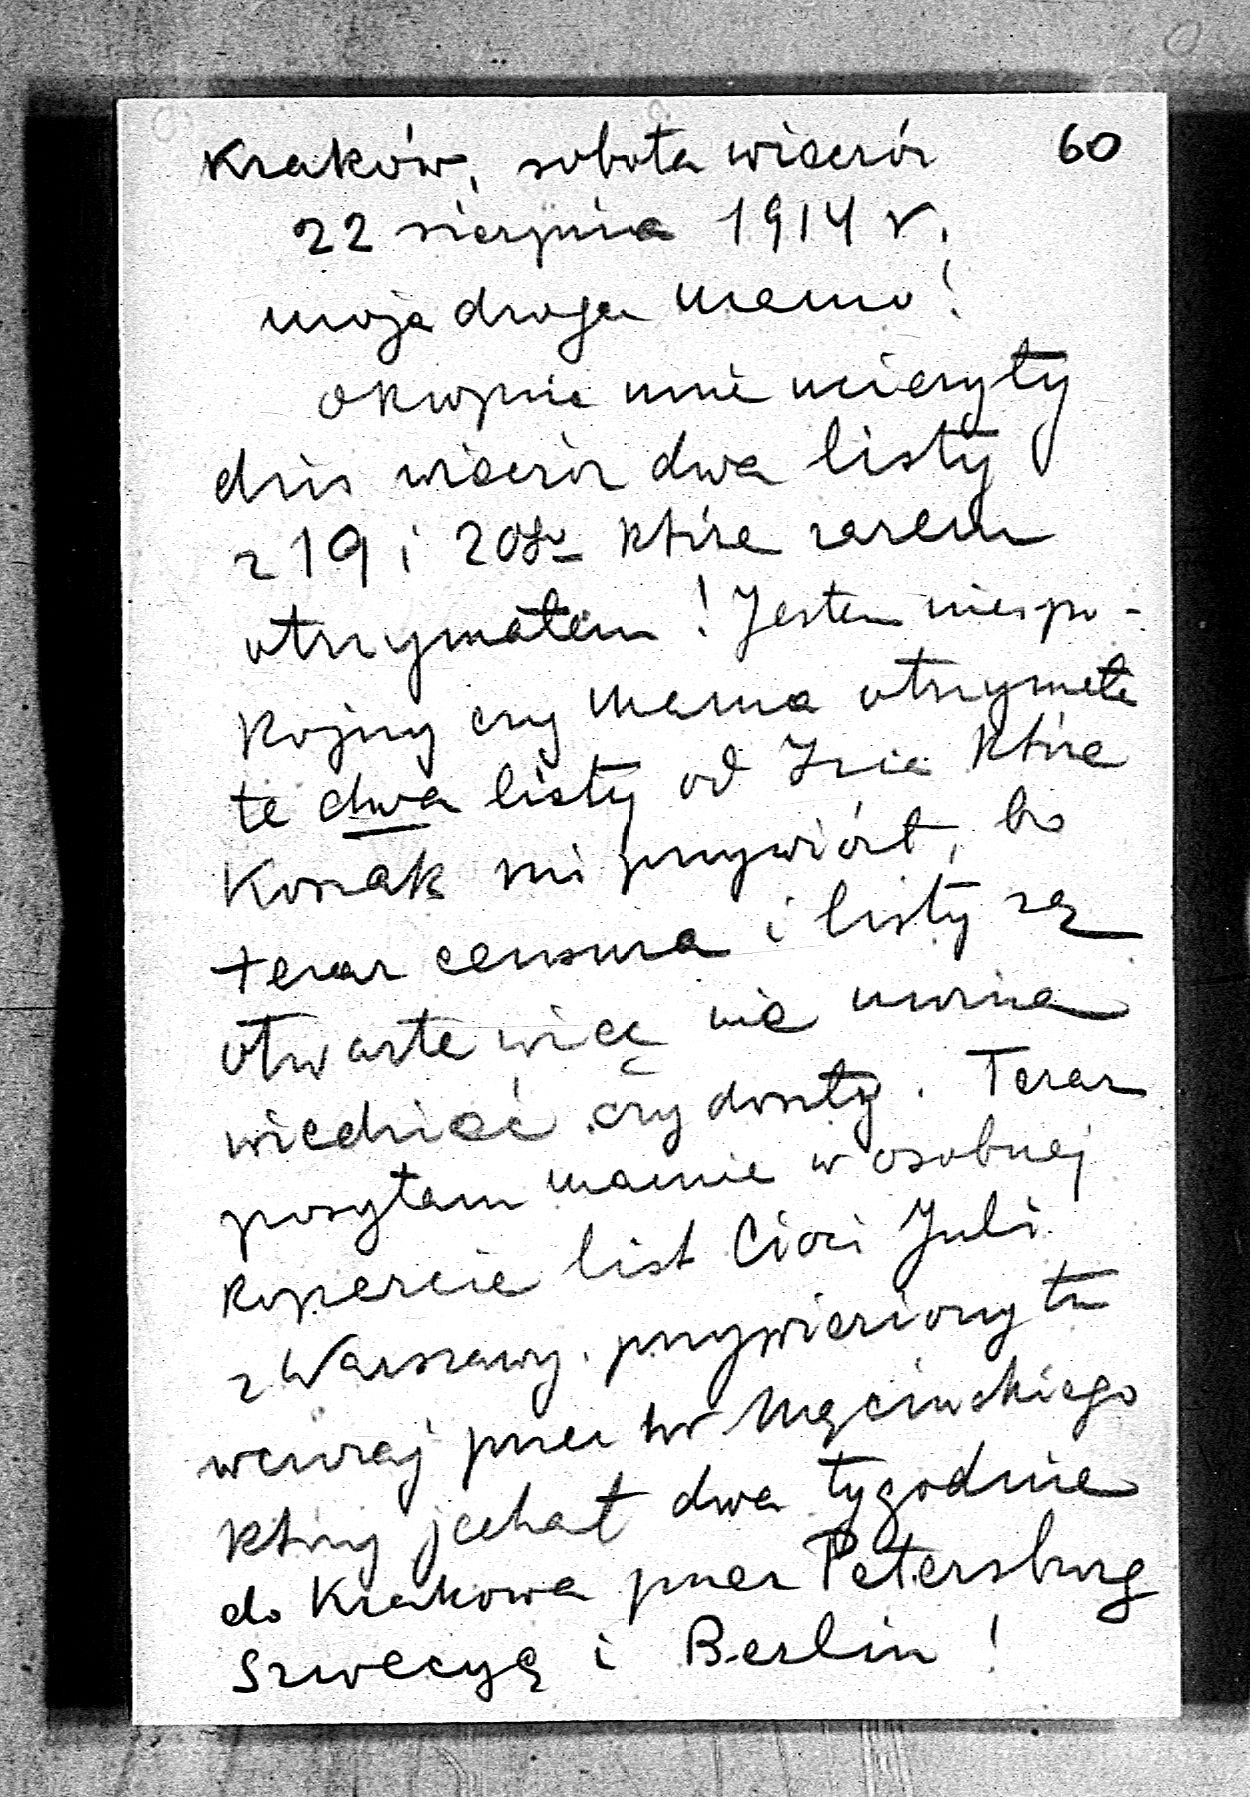 Kraków, sobota wieczór 60
22 sierpnia 1914 r.
moja droga Mamo!
Okropnie mnie ucieszyły
dziś wieczór dwa listy
z 19 i 20go które razem
otrzymałem! Jestem niespo-
kojny czy Mama otrzymała
te dwa listy od Izie które
Kossak mi przywiózł, bo
teraz censura i listy są
otwarte więc nie można
wiedzieć czy doszły. Teraz
posyłam Mamie w osobnej
kopercie list Cioci Juli
z Warszawy przywieziony tu
wczoraj przez hr Męcińskiego
który jechał dwa tygodnie
do Krakowa przez Petersburg
Szwecyę i Berlin!